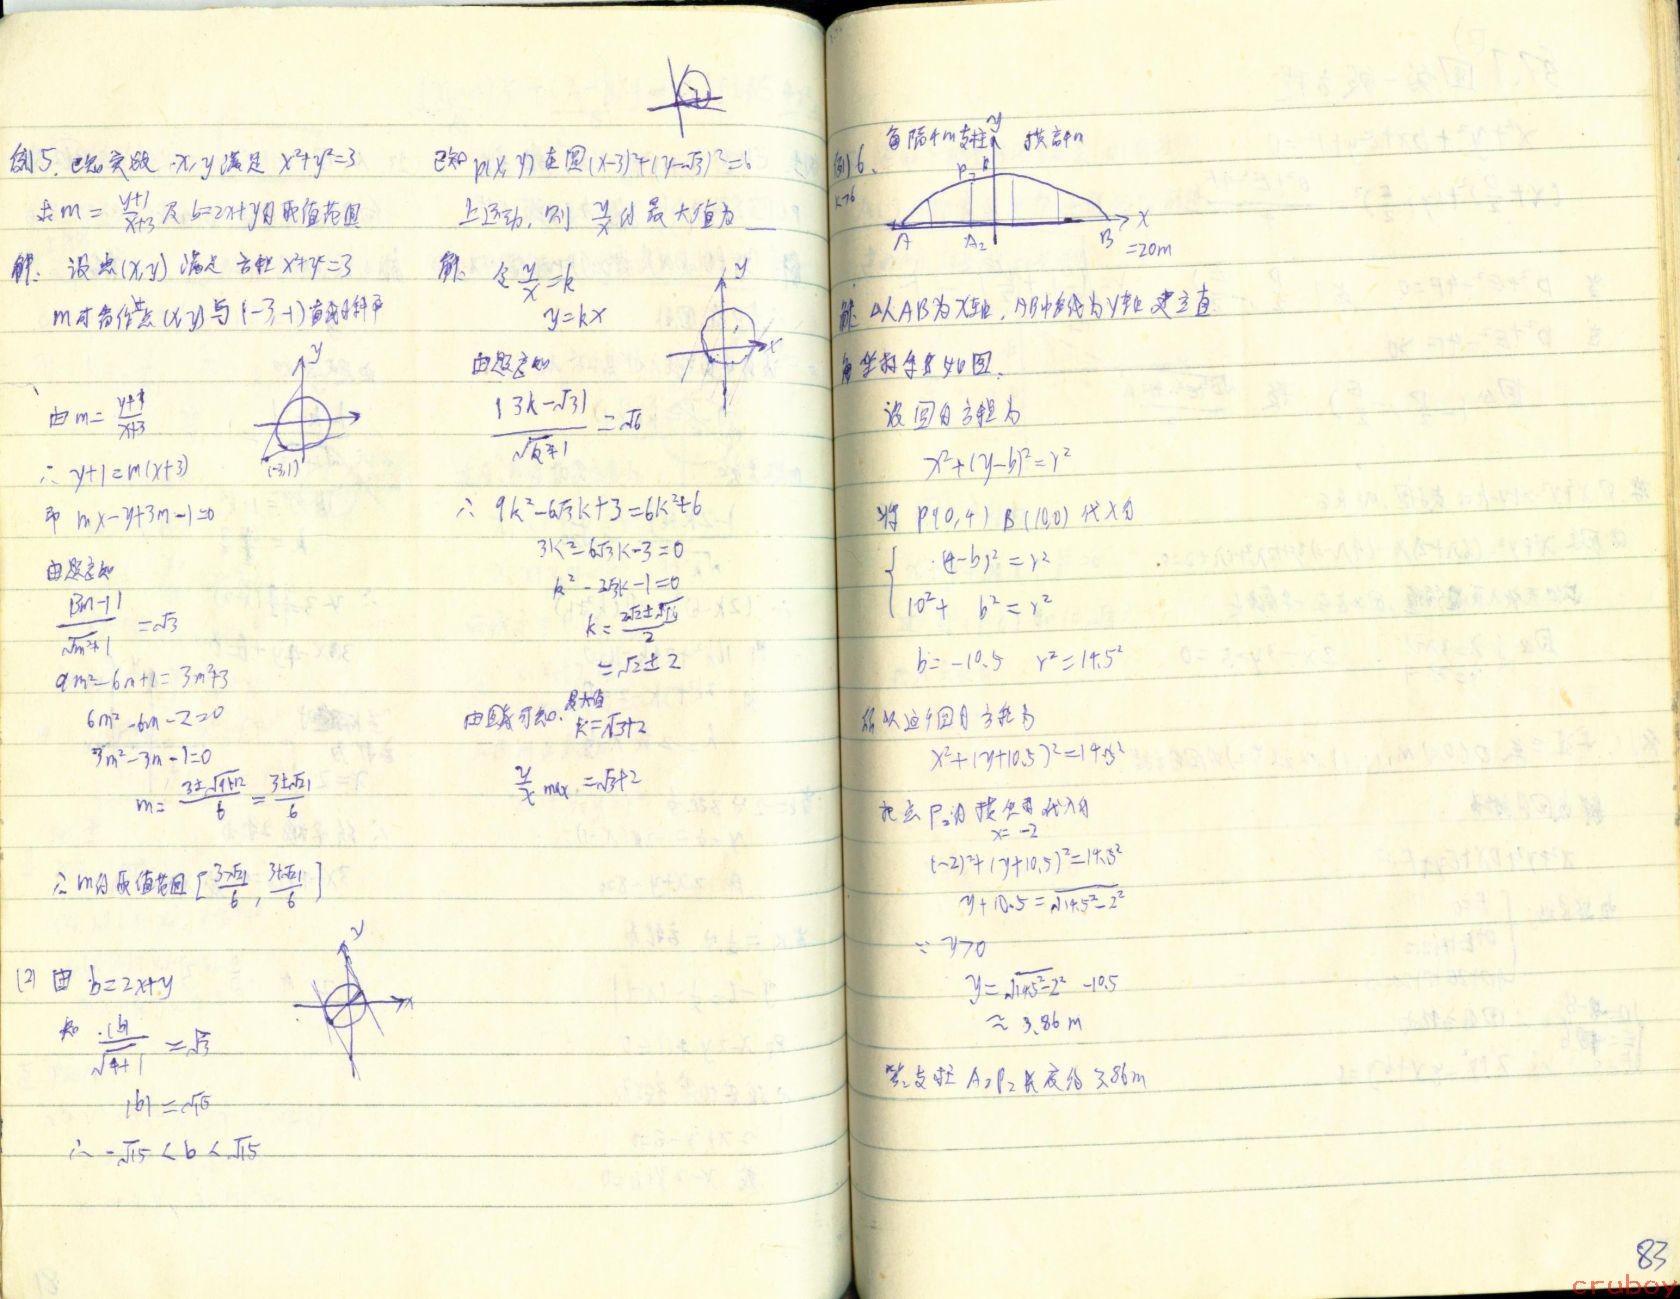 例5. 已知实数 x,y 满足 x²+y²=3
求 m = (y+1)/(x+3) 及 b=2x+y的取值范围
解: 设点(x,y) 满足 方程 x²+y²=3
m可看作点(x,y)与(-3,-1)直线的斜率
y
(-3,1)
由 m= (y+1)/(x+3)
∴ y+1=m(x+3)
即 mx-y+3m-1=0
由题意知
|3m-1|/√(m²+1) =√3
9m²-6m+1=3m²+3
6m²-6m-2=0
3m²-3m-1=0
m= (3±√(9+12))/6 = (3±√21)/6
∴ m的取值范围 [(3-√21)/6, (3+√21)/6]
(2) 由 b=2x+y
y
x
知 |b|/√(4+1) =√3
|b|=√15
∴ -√15 < b < √15
已知 p(x,y) 在圆(x-3)²+(y-√3)²=6
上运动, 则 y/x 的最大值为__
解: 令 y/x=k
y=kx
y
x
由题意知
|3k-√3|/√(k²+1) =√6
∴ 9k²-6√3k+3=6k²+6
3k²-6√3k-3=0
k²-2√3k-1=0
k= (2√2±√16)/2
=√2±2
由图可知, 最大值
k=√3+2
y/x max =√3+2
例6. 每隔4m支柱 拱高4m
y
P₂ P
A A₂ B x
=20m
解: 以AB为x轴, AB中垂线为y轴 建立直
角坐标系如图.
设圆的方程为
x²+(y-b)²=r²
将 P(0,4) B(10,0) 代入得
(4-b)²=r²
10²+ b²=r²
b=-10.5 r²=14.5²
所以这个圆的方程为
x²+(y+10.5)²=14.5²
把点P₂的横坐标代入得
x=-2
(-2)²+(y+10.5)²=14.5²
y+10.5=√(14.5²-2²)
∵ y>0
y=√(14.5²-2²) -10.5
≈ 3.86 m
答: 支柱 A₂P₂ 长度约 3.86m
83
cruboy